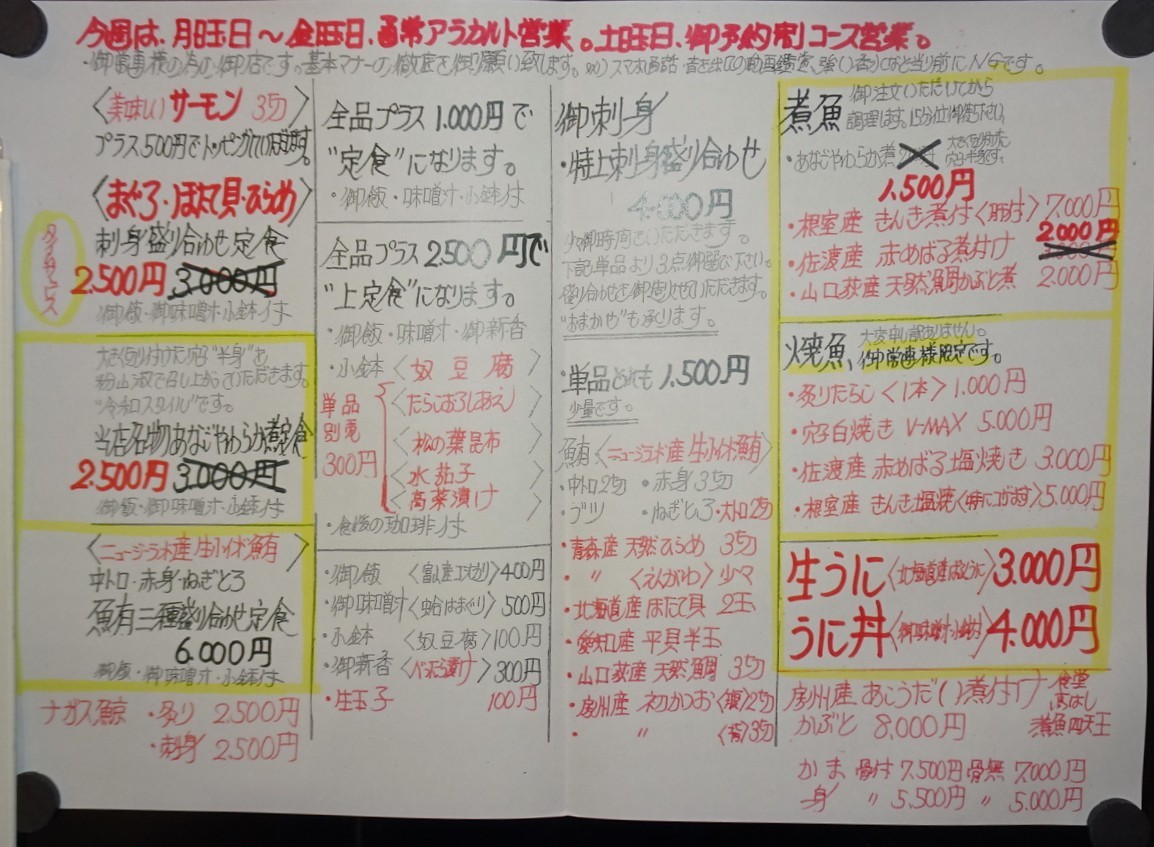 今週は、月曜日～金曜日、通常アラカルト営業。土曜日、御予約制コース営業。
・御常連様の為の御店です。基本マナーの徹底を御願い致します。
〈美味しいサーモン 3切〉
プラス500円でトッピングしていただけます。
〈まぐろ・ほたて貝・ひらめ〉
タイムサービス
刺身盛り合わせ定食
2.500円 3.000円
御飯・御味噌汁・小鉢付
大きく切り付けた穴子"半身"を
粉山椒で召し上がっていただきます。
"令和スタイル"です。
当店名物あなごやわらか煮定食
2.500円 3.000円
御飯・御味噌汁・小鉢付
〈ニュージーランド産 生インド鮪〉
中トロ・赤身・ねぎとろ
鮪三種盛り合わせ定食
6.000円
御飯・御味噌汁・小鉢付
ナガス鯨 ・炙り 2.500円
・刺身 2.500円
全品プラス1.000円で
"定食"になります。
・御飯・味噌汁・小鉢付
全品プラス2.500円で
"上定食"になります。
・御飯・味噌汁・御新香
・小鉢〈奴豆腐〉
単品別売300円
〈たらこおろしあえ〉
〈松の葉昆布〉
〈水茄子〉
〈高菜漬け〉
・食後の珈琲付
・御飯〈富山産コシヒカリ〉400円
・御味噌汁〈蛤はまぐり〉500円
・小鉢〈奴豆腐〉100円
・御新香〈べったら漬け〉300円
・生玉子 100円
御刺身
・特上刺身盛り合わせ
4.500円
少々御時間をいただきます。
下記単品より3点御選び下さい。
盛り合わせを御造りさせていただきます。
"おまかせ"も承ります。
・単品どれも1.500円
少量です。
鮪〈ニュージーランド産 生インド鮪〉
・中トロ2切 ・赤身3切
・ブツ ・ねぎとろ・大トロ2切
・青森産 天然ひらめ 3切
・〃〈えんがわ〉少々
・北海道産 ほたて貝 2玉
・愛知産 平貝半玉
・山口萩産 天然鯛 3切
・房州産 初かつお〈腹〉2切
・〃〈背〉3切
煮魚 御注文いただいてから
調理します。15分位御待ち下さい。
・あなごやわらか煮 大きく切り付けた
穴子半身です。
1.500円
・根室産 きんき煮付〈肝付〉7.000円
2.000円
・佐渡産 赤めばる煮付け
・山口萩産 天然鯛かぶと煮 2.000円
焼魚 大変申し訳ありません。
御常連様限定です。
・炙りたらこ〈1本〉1.000円
・穴子白焼き V-MAX 5.000円
・佐渡産 赤めばる塩焼き 3.000円
・根室産 きんき塩焼〈特にコゲます〉5.000円
生うに〈北海道産ばふんうに〉3.000円
うに丼〈御味噌汁・小鉢付〉4.000円
房州産 あこうだい煮付け 食堂
高はし
煮魚四天王
かぶと 8.000円
かま 骨付 7.500円 骨無 7.000円
身 〃 5.500円 〃 5.000円